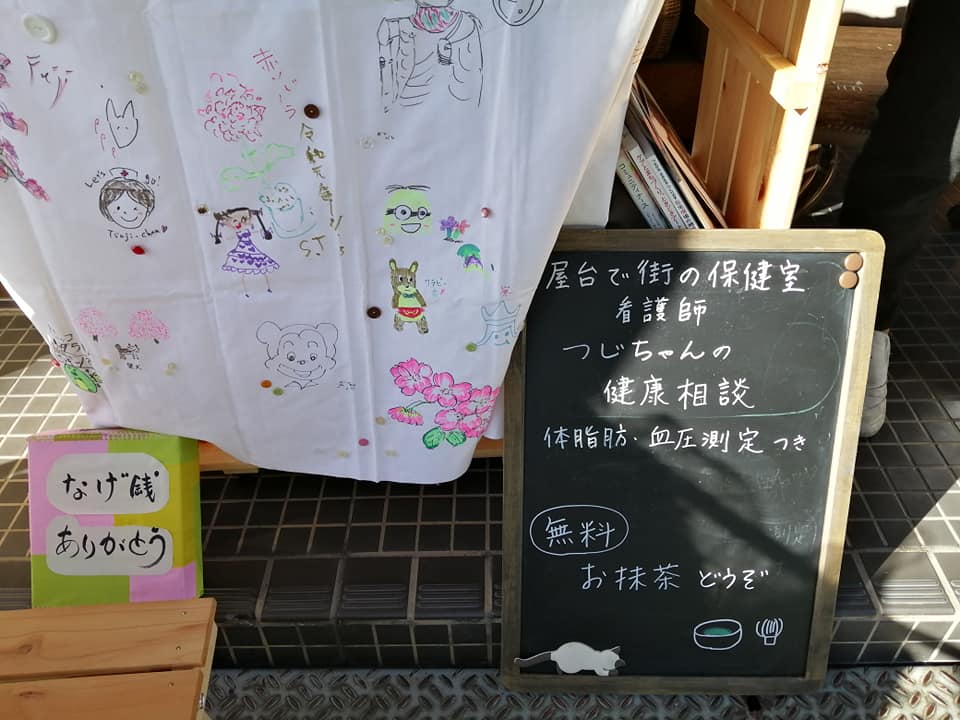 赤いつ
令和元年
Let's go!
Tsuji-chan
S.T.
屋台で街の保健室
看護師
つじちゃんの
健康相談
体脂肪・血圧測定つき
無料
お抹茶どうぞ
なげ銭
ありがとう